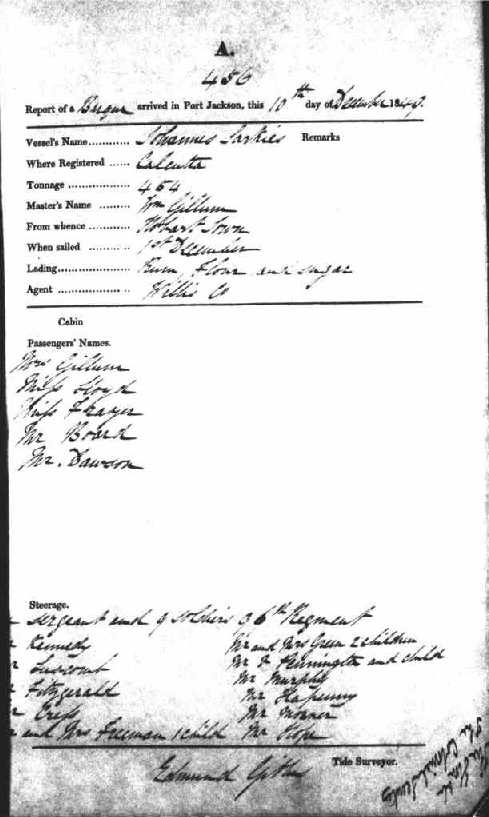 A.
456
Report of a Barque arrived in Port Jackson, this 10th day of December 1849.
Vessel's Name ............ Johannes Sarkies Remarks
Where Registered ...... Calcutta
Tonnage .................. 454
Master's Name ......... Wm Gillum
From whence ............ Hobart Town
When sailed ............ 1st December
Lading..................... Rum, Flour and sugar
Agent ..................... Willis Co
Cabin
Passengers' Names.
Mrs Gillum
Miss Lloyd
Miss
Mr Board
Mr. Dawson
Steerage.
sergeant and 9 soldiers 96th Regiment
Kennedy Mr and Mrs Green 2 children
Luscomb Mr Pennington and child
Fitzgerald Mr Murphy
Cress Mr Hapenny
and Mrs Freeman 1 child Mr
Mr Hope
Edmund Tide Surveyor.